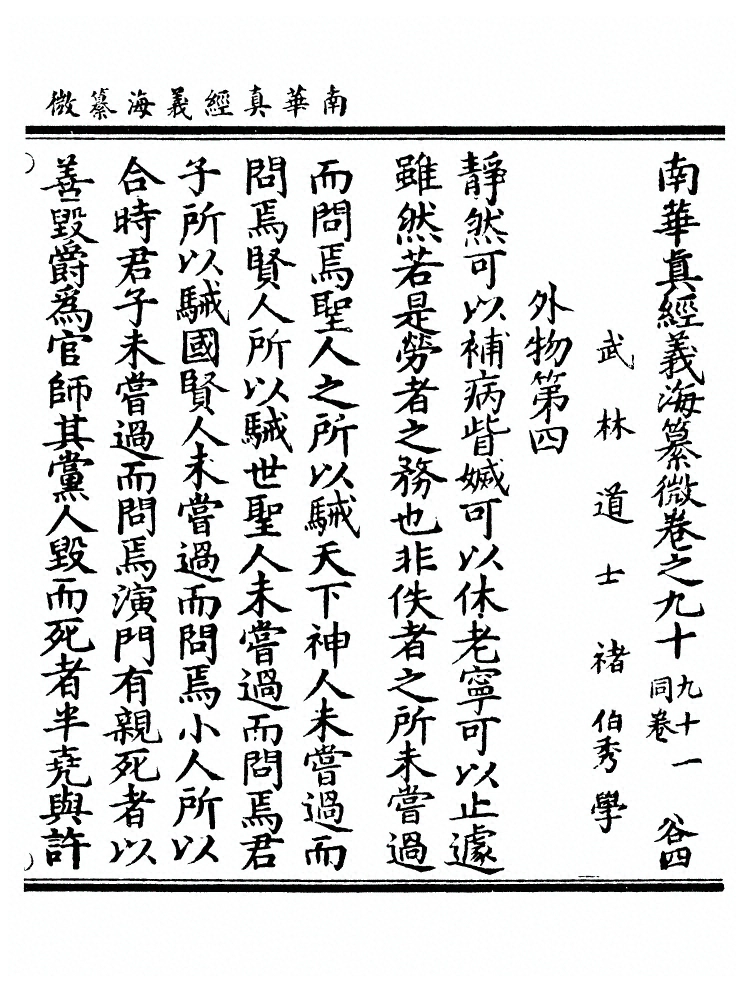 南華真經義海纂微
南華眞經義海纂微卷之九十 九十一同卷 谷四
武林道士褚伯秀學
外物第四
靜然可以補病眥㓕可以休老寧可以止遽
雖然若是勞者之務也非佚者之所未嘗過
而問焉聖人之所以駴天下神人未嘗過而
問焉賢人所以駴世聖人未嘗過而問焉君
子所以駴國賢人未嘗過而問焉小人所以
合時君子未嘗過而問焉演門有親死者以
善毀爵爲官師其黨人毀而死者半堯與許